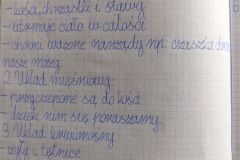 - kości, chrząstki i stawy
- utrzymuje ciało w całości
- chroni ważne narządy np. czaszka
nasz mózg.
2. Układ mięśniowy:
- przyczepione są do kości
- dzięki nim się poruszamy.
3. Układ krwionośny
- żyły i tętnice